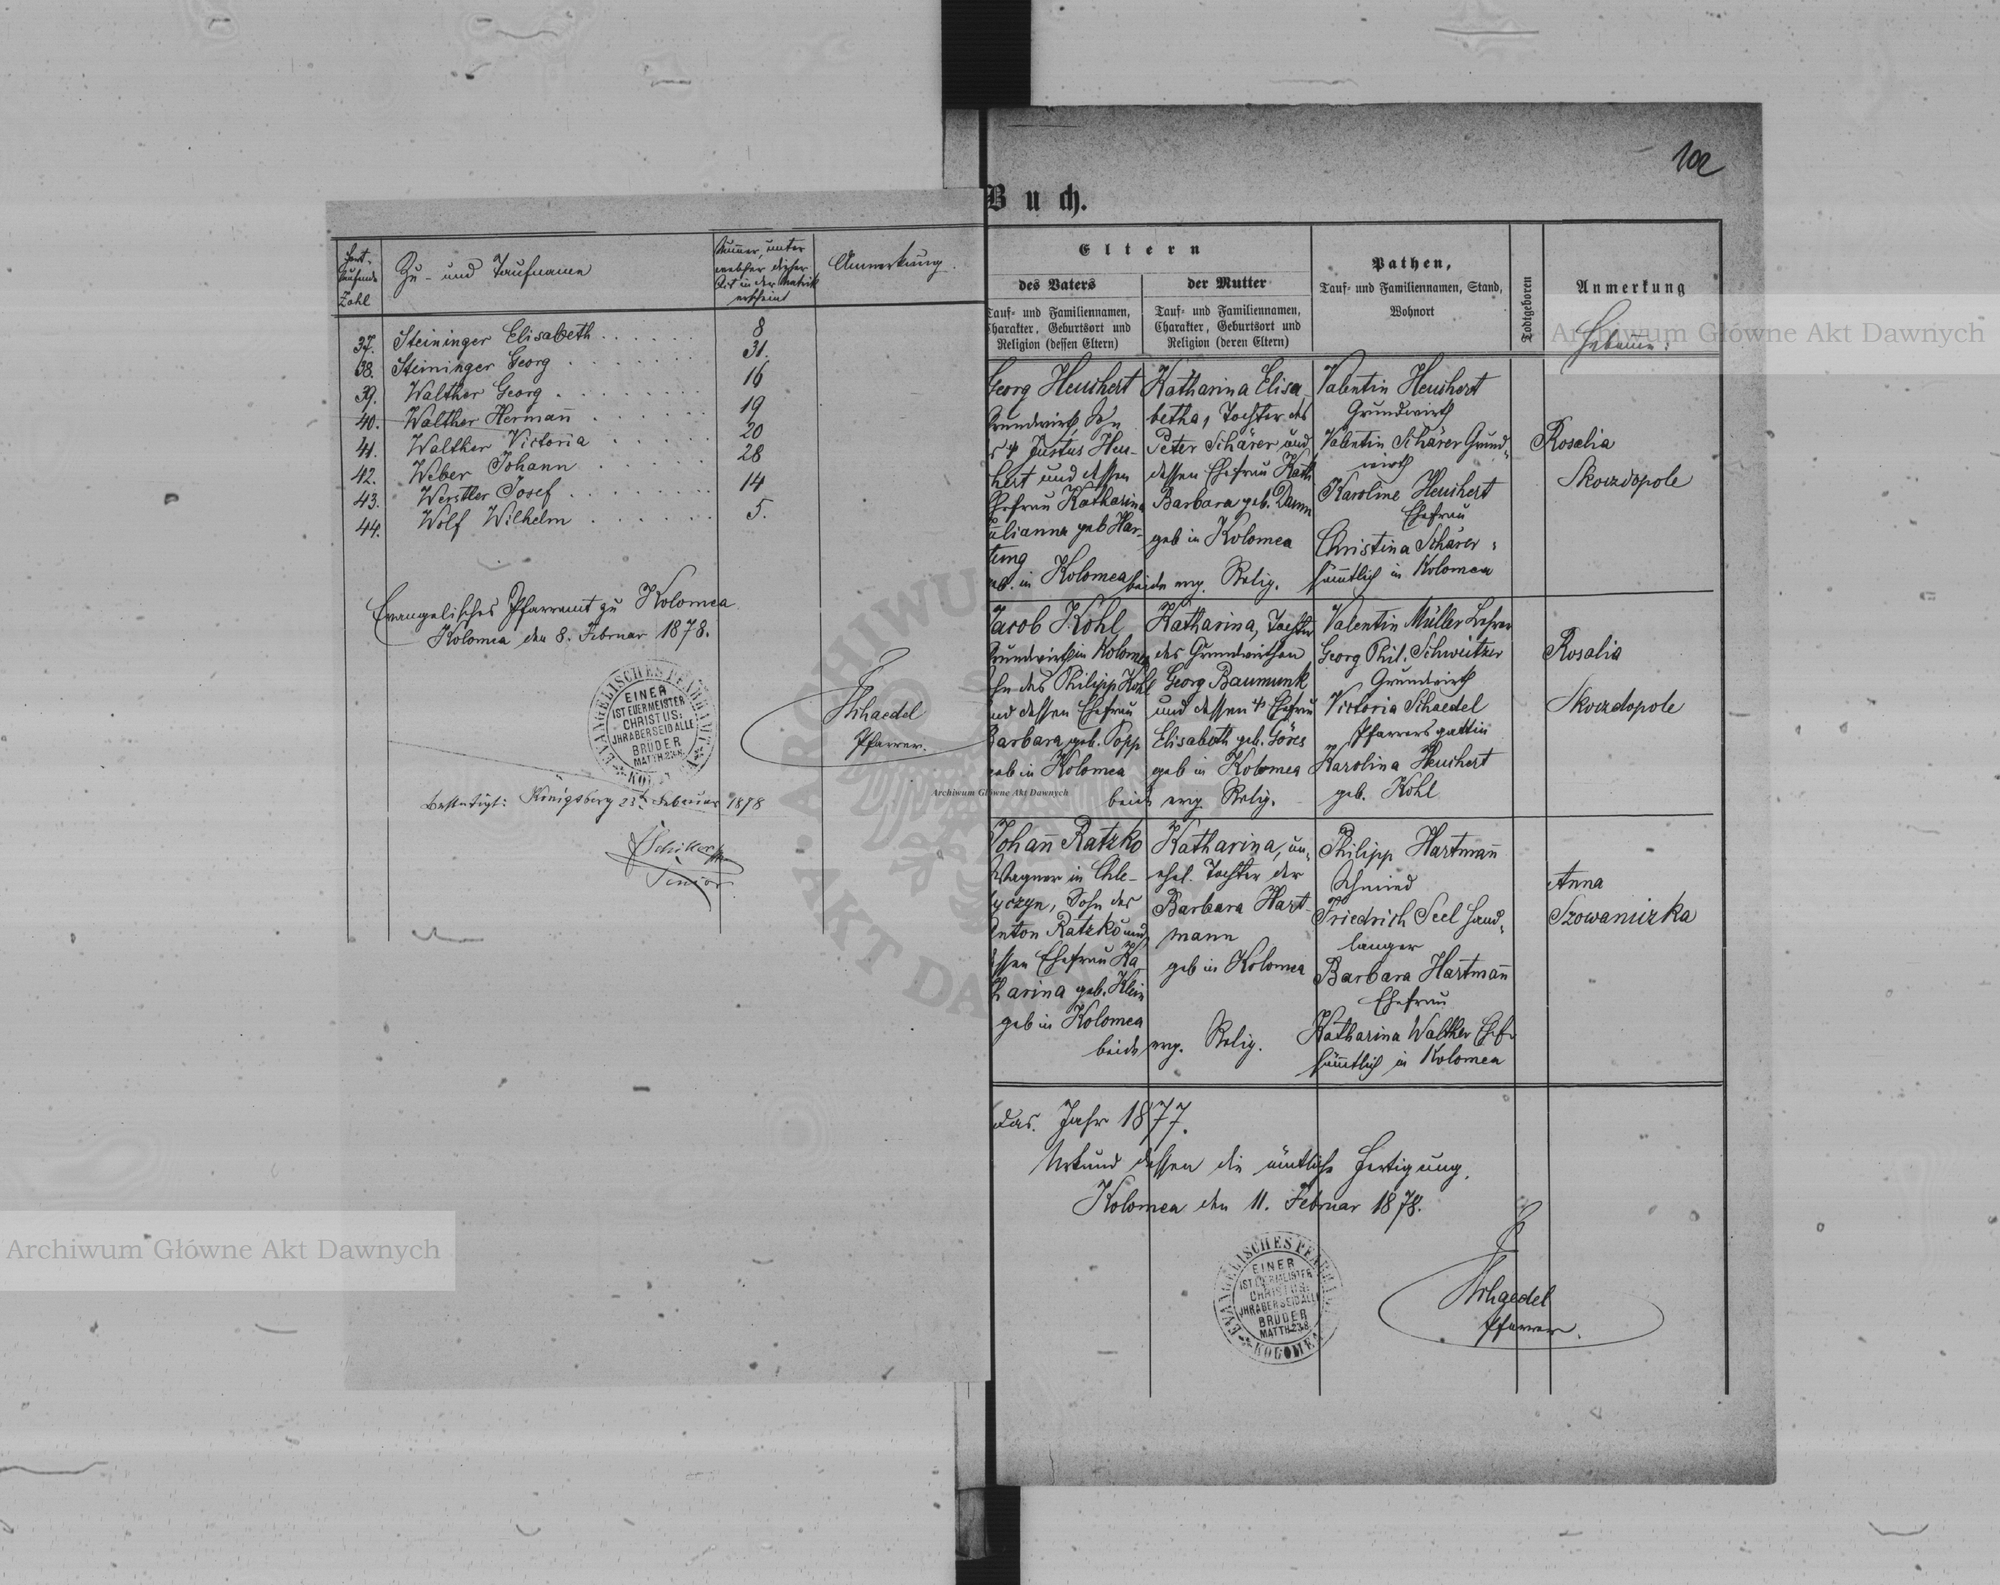 102
Buch.
Fort-
laufende
Zahl
Zu- und Taufname
Nummer, unter
welcher dieser
Act in der Matrik
erscheint
Anmerkung.
37. Steininger Elisabeth . . . . . . 8
38. Steininger Georg . . . . . . 31.
39. Walther Georg . . . . . . . 16
40. Walther Hermañ . . . . . . 19
41. Walther Victoria . . . . . 20
42. Weber Johann . . . . . . 28
43. Werstler Josef . . . . . . . 14
44. Wolf Wilhelm . . . . . . 5.
Evangelisches Pfarramt zu Kolomea
Kolomea den 8. Februar 1878.
EVANGELISCHES PFARRAMT
EINER
IST EUER MEISTER
CHRISTUS:
JHR ABER SEID ALLE
BRÜDER
MATTH. 23.8.
KOLOMEA
Schaedel
Pfarrer.
bestätigt: Königsberg 23t Februar 1878
Senior
Eltern
des Vaters
Tauf- und Familiennamen,
Charakter, Geburtsort und
Religion (dessen Eltern)
der Mutter
Tauf- und Familiennamen,
Charakter, Geburtsort und
Religion (deren Eltern)
Pathen,
Tauf- und Familiennamen, Stand,
Wohnort
Todtgeboren
Anmerkung
Hebame:
Georg Heuchert
Grundwirth, Sohn
Justus Heu-
chert und dessen
Ehefrau Katharina
Julianna geb Har-
tung
geb. in Kolomea
Katharina Elisa
betha, Tochter des
Peter Schärer und
dessen Ehefrau Kath
Barbara geb. Damm
geb in Kolomea
beide evg. Relig.
Valentin Heuchert
Grundwirth
Valentin Schärer Grund-
wirth
Karoline Heuchert
Ehefrau
Christina Schärer
sämtlich in Kolomea
Rosalia
Skozdopole
Jacob Kohl
Grundwirth in Kolomea
Sohn des Philipp Kohl
und dessen Ehefrau
Barbara geb. Popp
geb in Kolomea
Katharina, Tochter
des Grundwirthen
Georg Baumunk
und dessen † Ehefrau
Elisabeth geb. Göres
geb in Kolomea
beide evg. Relig.
Valentin Müller Lehrer
Georg Phil. Schweitzer
Grundwirth
Victoria Schaedel
Pfarrersgattin
Karolina Heuchert
geb. Kohl
Rosalia
Skozdopole
Johañ Ratzko
Wagner in Chle-
byczyn, Sohn des
Anton Ratzko und
dessen Ehefrau Ka
tharina geb. Klein
geb in Kolomea
Katharina, un-
ehel. Tochter der
Barbara Hart-
mann
geb in Kolomea
beide evg. Relig.
Philipp Hartmañ
Schmied
Friedrich Seel Hand-
langer
Barbara Hartmañ
Ehefrau
Katharina Walther Ehefr
sämtlich in Kolomea
Anna
das Jahr 1877.
Urkund dessen die ämtliche Fertigung.
Kolomea den 11. Februar 1878.
EVANGELISCHES PFARRAMT
EINER
IST EUER MEISTER
CHRISTUS:
JHR ABER SEID ALLE
BRÜDER
MATTH. 23.8
KOLOMEA
Schaedel
Pfarrer.
Archiwum Główne Akt Dawnych
Archiwum Główne Akt Dawnych
Archiwum Główne Akt Dawnych
ARCHIWUM
AKT DA